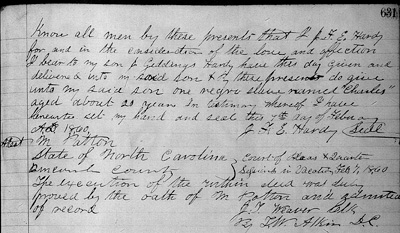 631
Know all men by these presents that I J. F. E. Hardy
for and in the consideration of the love and affection
I bear to my son J. Geddings Hardy have this day given and
delivered &amp; into my said son &amp; by these presents do give
unto my said son one negro slave named "Charles"
aged about 20 years In testimony whereof I have
hereunto set my hand and seal this 7th day of Februay
AD. 1860.
J. F. E. Hardy Seal
Attest
M Patton
State of North Carolina
County
Court of Pleas &amp; Quarter
Sessions in Vacation Feb 7, 1860
The execution of the within deed was duly
proved by the oath of M Patton and admitted
of record
J. T. Weaver Clk
By T W Atkin D.C.